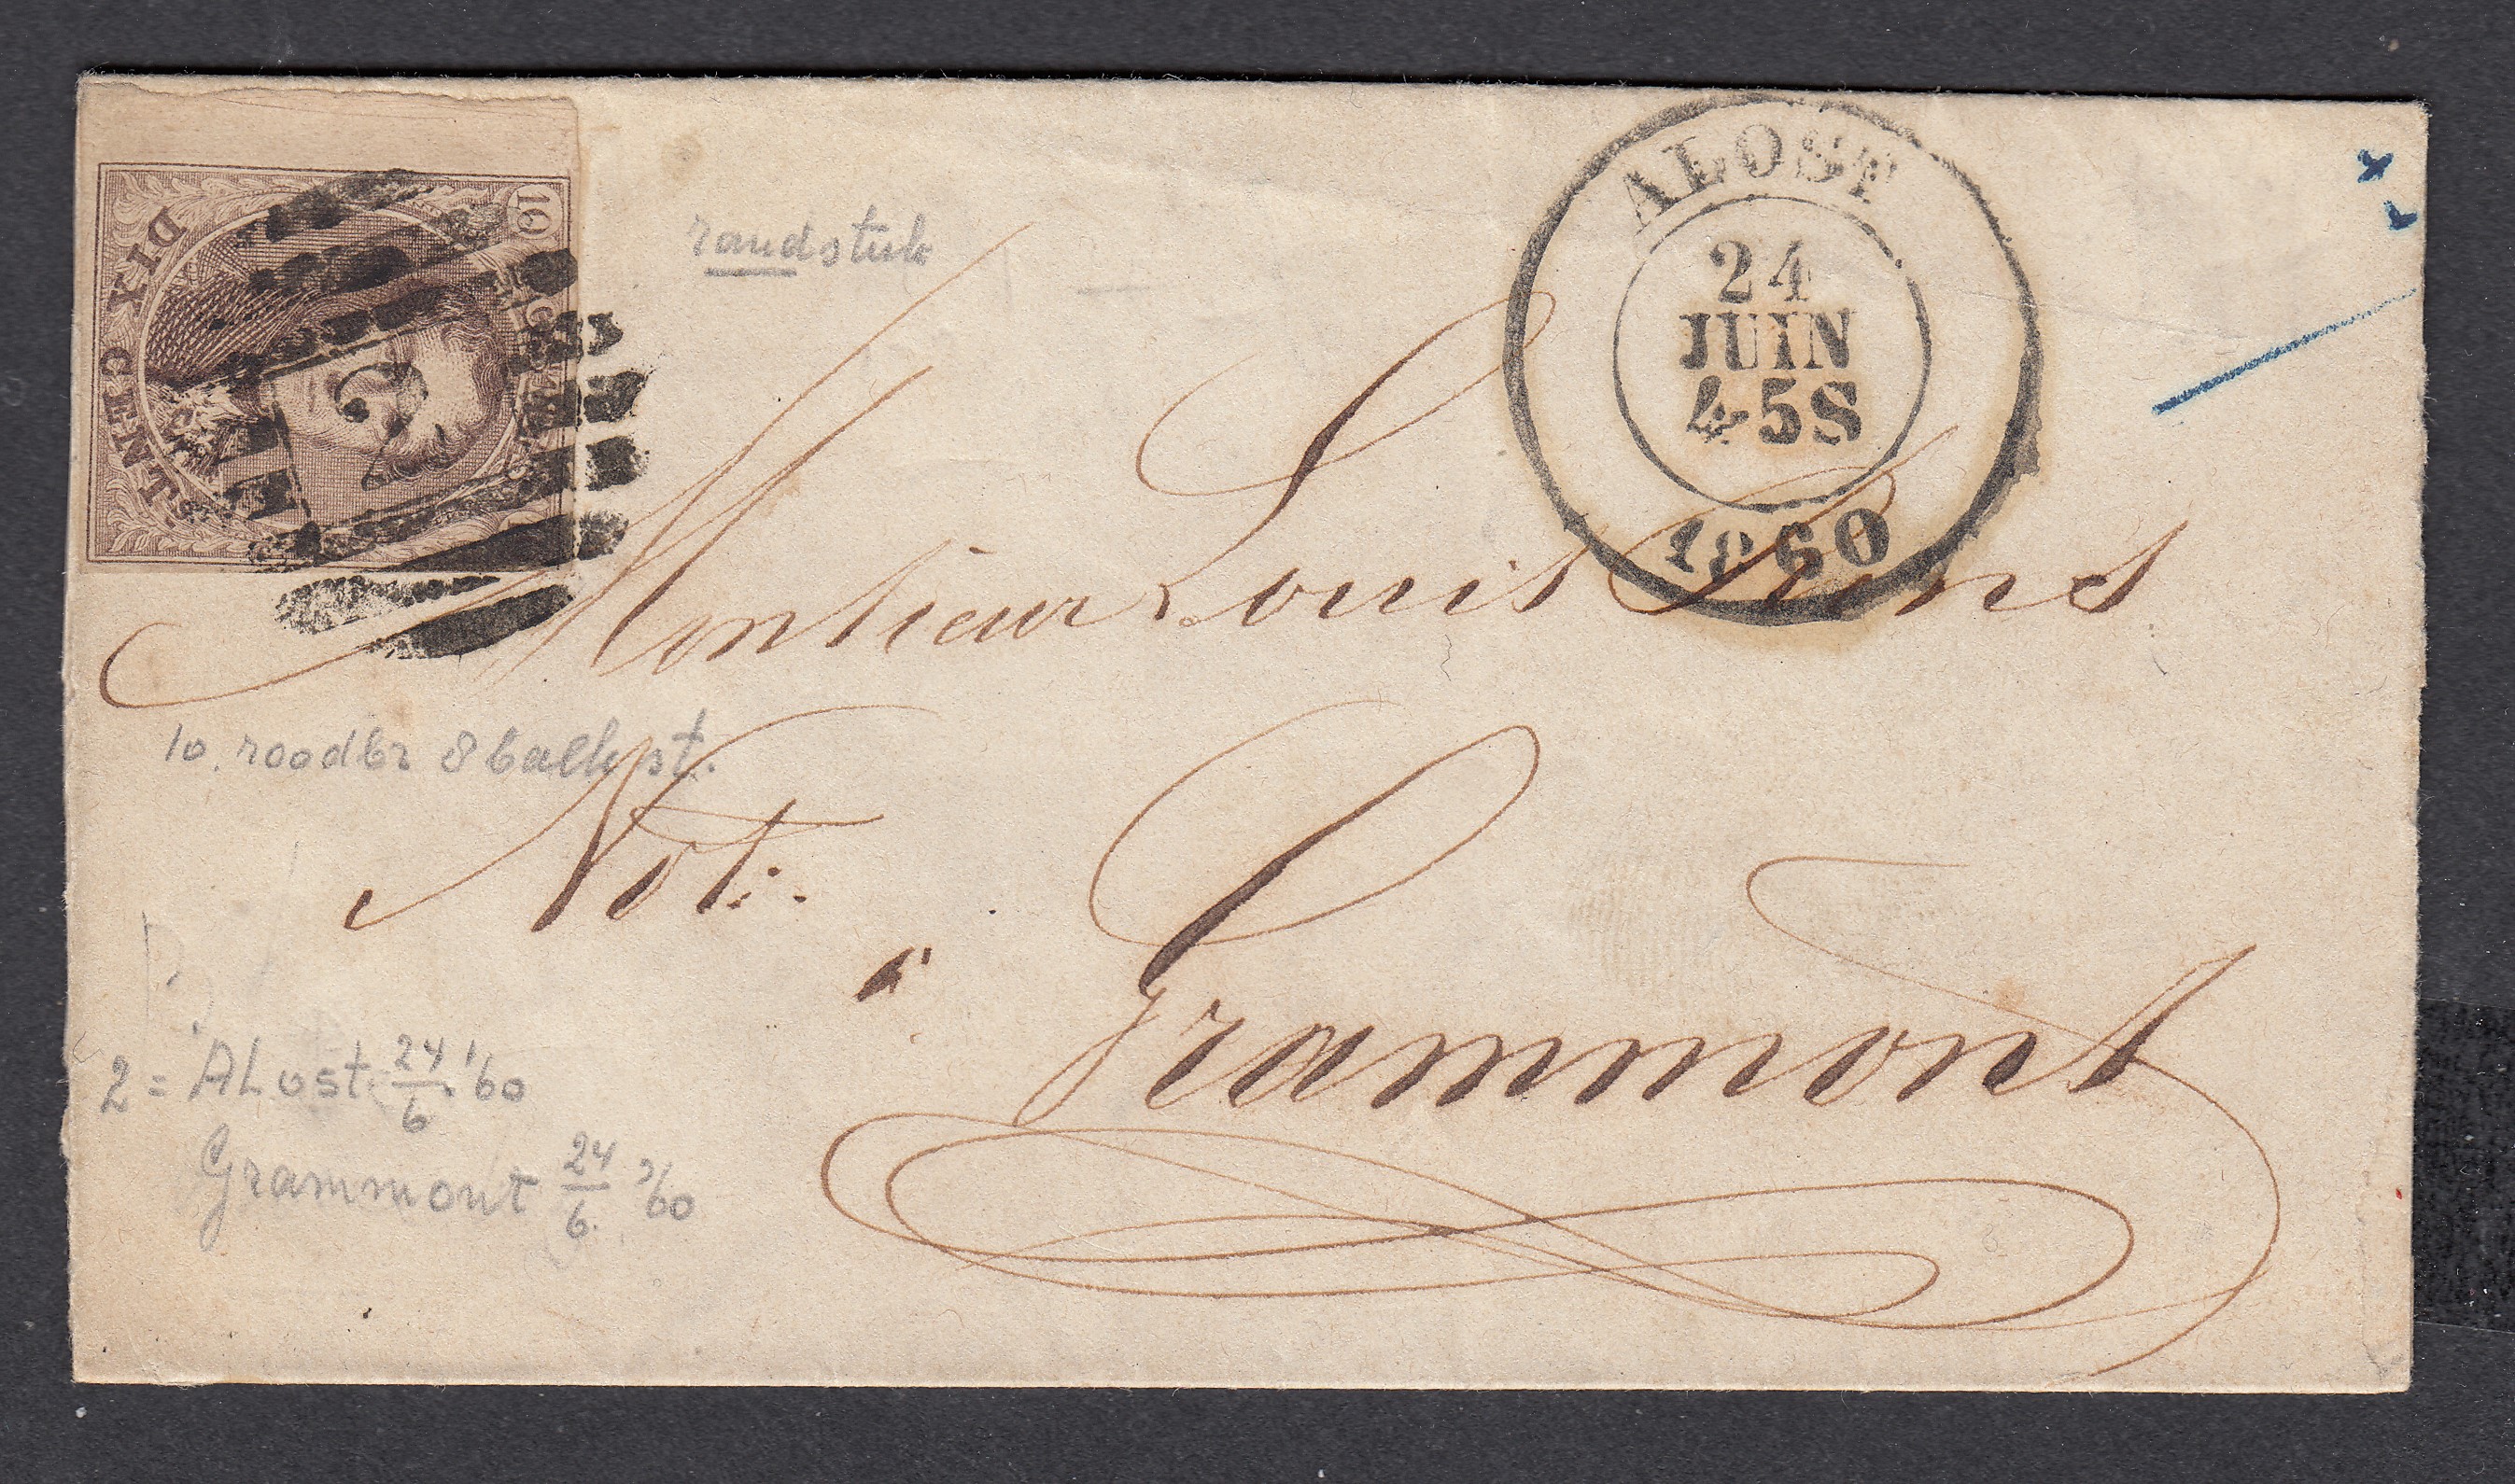 POSTES
10
DIX CENTS
2
randstuk
ALOST
24
JUIN
4-5S
1860
Monsieur Louis
10. roodbr 8 balk st.
Not:
à Grammont
2 = ALost 24/6 '60
Grammont 24/6 '60